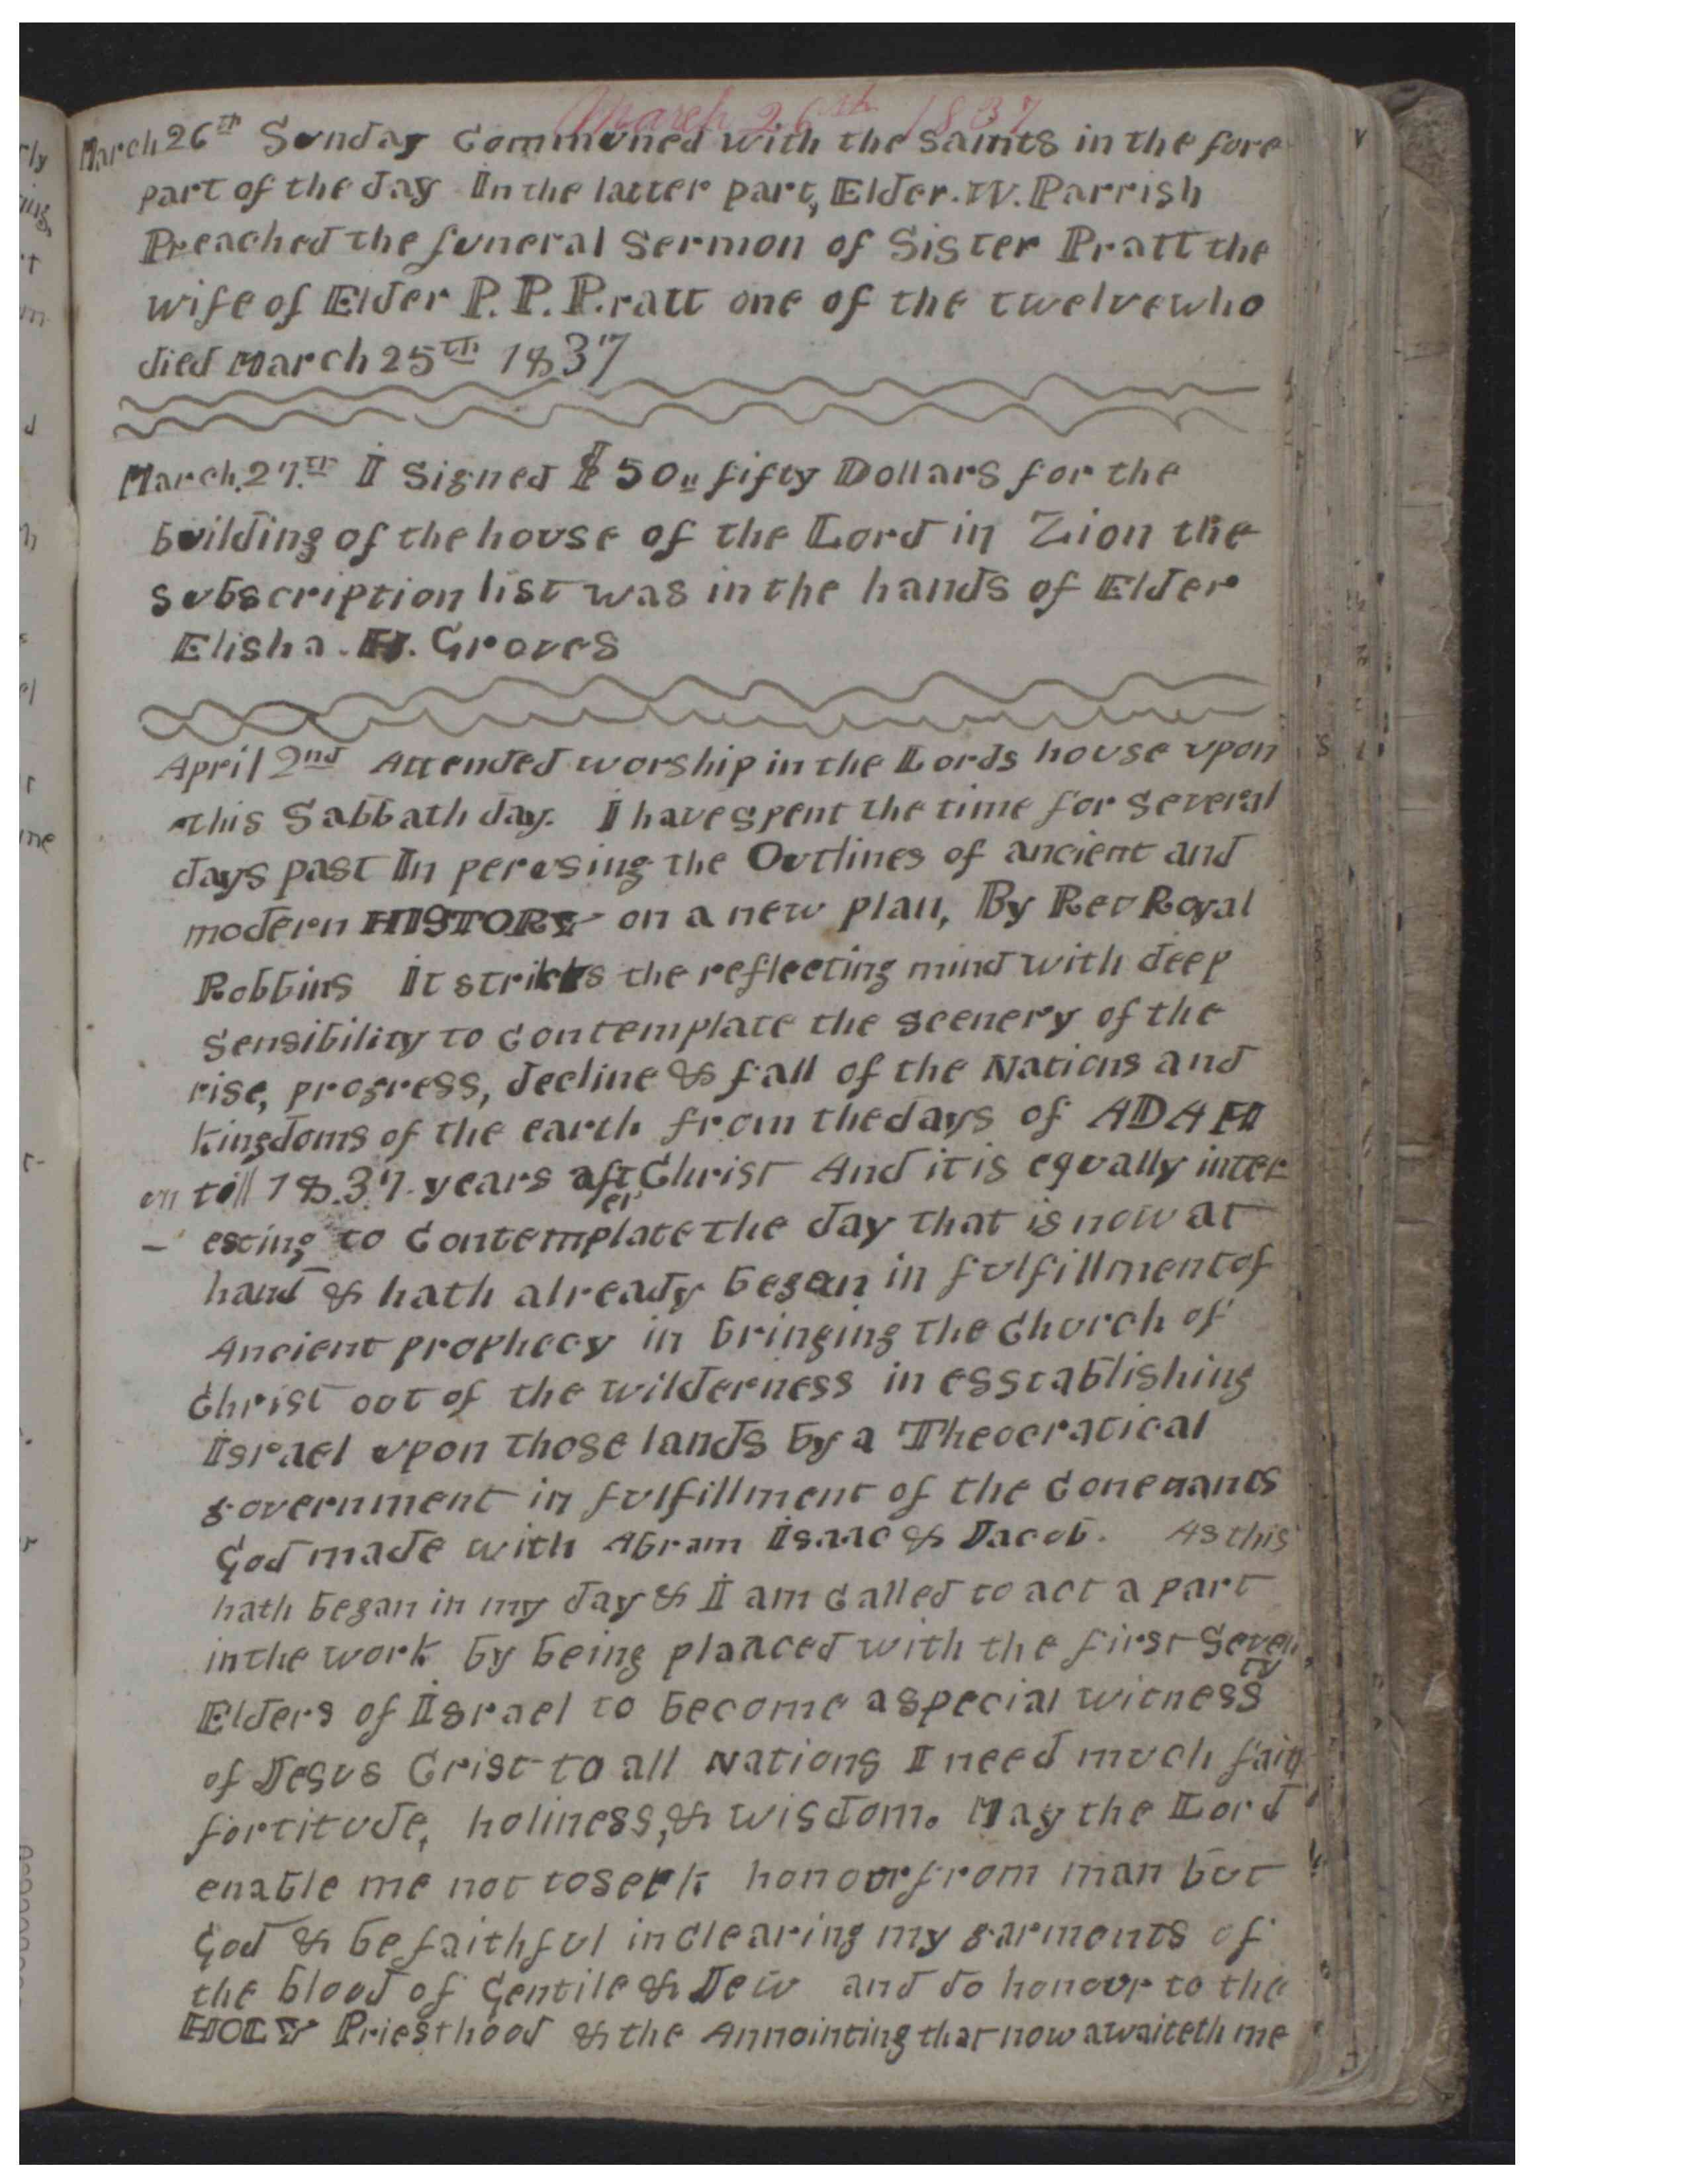 March 26th 1837
March 26th Sunday Communed with the Saints in the fore
part of the day In the latter part, Elder. W. Parrish
Preached the funeral Sermon of Sister Pratt the
wife of Elder P. P. Pratt one of the twelve who
died March 25th 1837
March. 27.th I Signed $50.. fifty Dollars for the
building of the house of the Lord in Zion the
subscription list was in the hands of Elder
Elisha. H. Groves
April 2nd Attended worship in the Lords house upon
this Sabbath day. I have spent the time for several
days past In perusing the Outlines of ancient and
modern HISTORY on a new plan, By Rev Royal
Robbins It strikes the reflecting mind with deep
Sensibility to Contemplate the scenery of the
rise, progress, decline & fall of the Nations and
kingdoms of the earth from the days of ADAM
on till 1837. years after Christ And it is equally inter
- esting to Contemplate the day that is now at
hand & hath already began in fulfillment of
Ancient prophecy in bringing the Church of
Christ out of the wilderness in esstablishing
Israel upon those lands by a Theocratical
government in fulfillment of the Conenants
God made with Abram Isaac & Jacob. As this
hath began in my day & I am Called to act a part
in the work by being plaaced with the first Seventy
Elders of Israel to become a special witness
of Jesus Crist to all Nations I need much faith
fortitude, holiness, & wisdom. May the Lord
enable me not to seek honour from man but
God & be faithful in clearing my garments of
the blood of Gentile & Jew and do honour to the
HOLY Priesthood & the Annointing that now awaiteth me